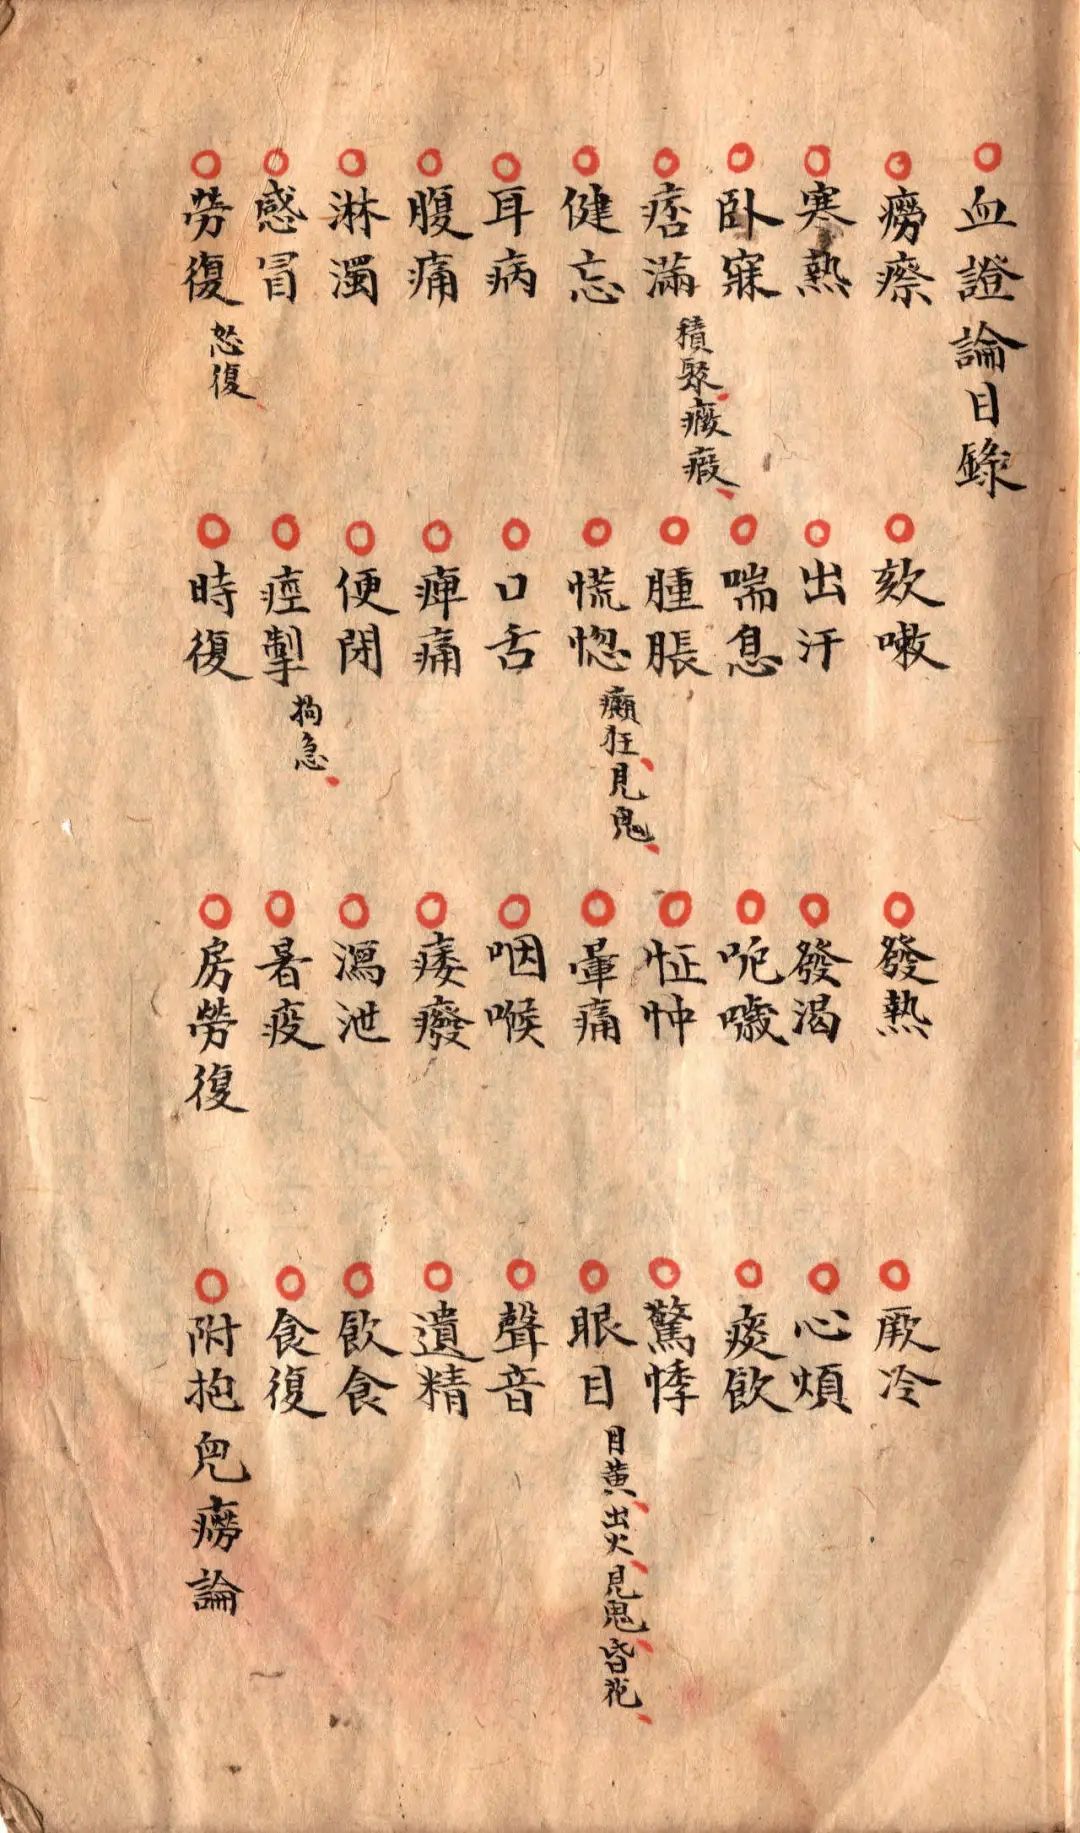 血證論目錄
癆瘵 欬嗽 發熱 厥冷
寒熱 出汗 發渴 心煩
臥寐 喘息 呃噦 痰飲
痞滿 積聚、癥瘕、 腫脹 怔忡 驚悸
健忘 慌惚 癲狂、見鬼、 暈痛 眼目 目黃、出火、見鬼、昏花、
耳病 口舌 咽喉 聲音
腹痛 痺痛 痿癈 遺精
淋濁 便閉 瀉泄 飲食
感冒 痙掣 拘急、 暑疫 食復
勞復 怒復、 時復 房勞復 附抱兒癆論